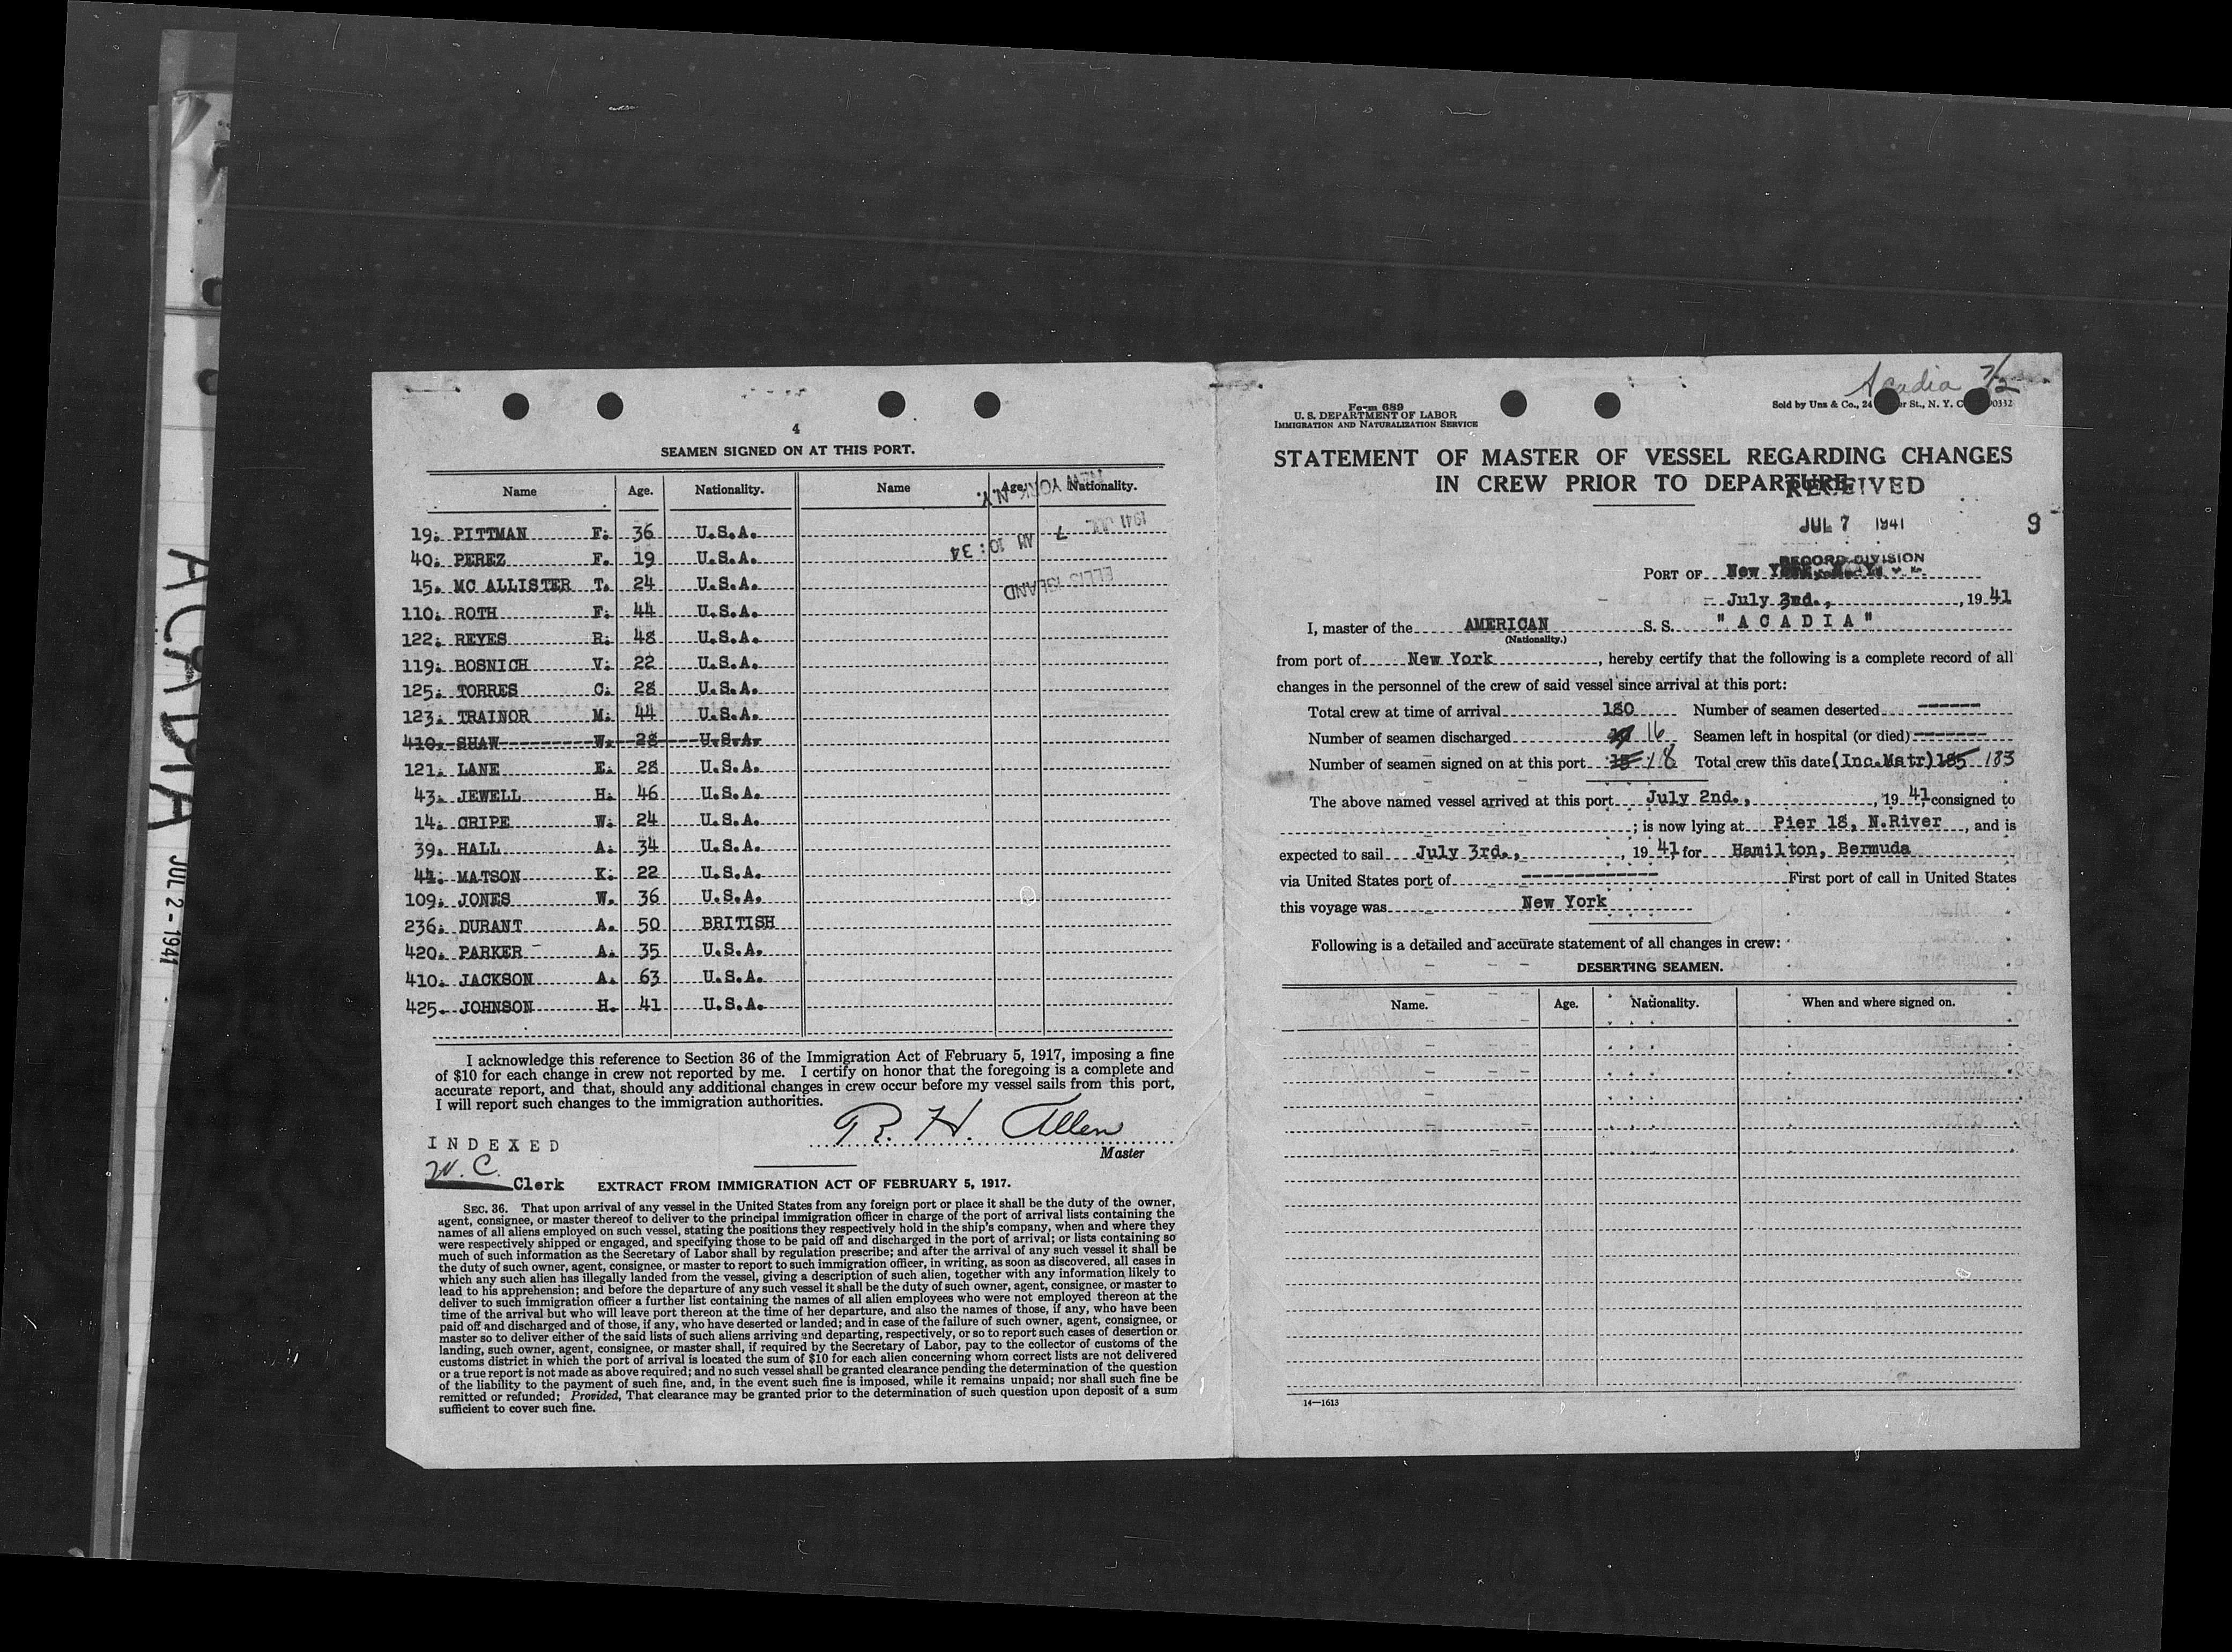 ACADIA JUL 2 - 1941
4
SEAMEN SIGNED ON AT THIS PORT.
Name Age. Nationality. Name Age. Nationality.
NEW YORK N.Y.
1941 JUL 7 AM 10:34
ELLIS ISLAND
19. PITTMAN F. 36 U.S.A.
40. PEREZ F. 19 U.S.A.
15. MC ALLISTER T. 24 U.S.A.
110. ROTH F. 44 U.S.A.
122. REYES R. 48 U.S.A.
119. BOSNICH V. 22 U.S.A.
125. TORRES C. 28 U.S.A.
123. TRAINOR M. 44 U.S.A.
410. SHAW W. 28 U.S.A.
121. LANE E. 28 U.S.A.
43. JEWELL H. 46 U.S.A.
14. CRIPE W. 24 U.S.A.
39. HALL A. 34 U.S.A.
44. MATSON K. 22 U.S.A.
109. JONES W. 36 U.S.A.
236. DURANT A. 50 BRITISH
420. PARKER A. 35 U.S.A.
410. JACKSON A. 63 U.S.A.
425. JOHNSON H. 41 U.S.A.
I acknowledge this reference to Section 36 of the Immigration Act of February 5, 1917, imposing a fine
of $10 for each change in crew not reported by me. I certify on honor that the foregoing is a complete and
accurate report, and that, should any additional changes in crew occur before my vessel sails from this port,
I will report such changes to the immigration authorities.
R. H. Allen
Master
INDEXED
W. C.
Clerk
EXTRACT FROM IMMIGRATION ACT OF FEBRUARY 5, 1917.
SEC. 36. That upon arrival of any vessel in the United States from any foreign port or place it shall be the duty of the owner,
agent, consignee, or master thereof to deliver to the principal immigration officer in charge of the port of arrival lists containing the
names of all aliens employed on such vessel, stating the positions they respectively hold in the ship's company, when and where they
were respectively shipped or engaged, and specifying those to be paid off and discharged in the port of arrival; or lists containing so
much of such information as the Secretary of Labor shall by regulation prescribe; and after the arrival of any such vessel it shall be
the duty of such owner, agent, consignee, or master to report to such immigration officer, in writing, as soon as discovered, all cases in
which any such alien has illegally landed from the vessel, giving a description of such alien, together with any information likely to
lead to his apprehension; and before the departure of any such vessel it shall be the duty of such owner, agent, consignee, or master to
deliver to such immigration officer a further list containing the names of all alien employees who were not employed thereon at the
time of the arrival but who will leave port thereon at the time of her departure, and also the names of those, if any, who have been
paid off and discharged and of those, if any, who have deserted or landed; and in case of the failure of such owner, agent, consignee, or
master so to deliver either of the said lists of such aliens arriving and departing, respectively, or so to report such cases of desertion or
landing, such owner, agent, consignee, or master shall, if required by the Secretary of Labor, pay to the collector of customs of the
customs district in which the port of arrival is located the sum of $10 for each alien concerning whom correct lists are not delivered
or a true report is not made as above required; and no such vessel shall be granted clearance pending the determination of the question
of the liability to the payment of such fine, and, in the event such fine is imposed, while it remains unpaid; nor shall such fine be
remitted or refunded; Provided, That clearance may be granted prior to the determination of such question upon deposit of a sum
sufficient to cover such fine.
Acadia 7/2
Form 689
U. S. DEPARTMENT OF LABOR
IMMIGRATION AND NATURALIZATION SERVICE
Sold by Unz & Co., 24 er St., N. Y. C. 90332
STATEMENT OF MASTER OF VESSEL REGARDING CHANGES
IN CREW PRIOR TO DEPARTURE.
RECEIVED
JUL 7 1941
9
RECORD DIVISION
PORT OF New York, N.Y.
July 3rd., , 19 41
I, master of the AMERICAN S. S. "ACADIA"
(Nationality.)
from port of New York , hereby certify that the following is a complete record of all
changes in the personnel of the crew of said vessel since arrival at this port:
Total crew at time of arrival 180 Number of seamen deserted ------
Number of seamen discharged 16 Seamen left in hospital (or died) -------
Number of seamen signed on at this port 15 18 Total crew this date (Inc.Matr) 185 183
The above named vessel arrived at this port July 2nd., , 19 41 consigned to
; is now lying at Pier 18, N.River , and is
expected to sail July 3rd., , 19 41 for Hamilton, Bermuda
via United States port of -------------- First port of call in United States
this voyage was New York
Following is a detailed and accurate statement of all changes in crew:
DESERTING SEAMEN.
Name. Age. Nationality. When and where signed on.
14—1613